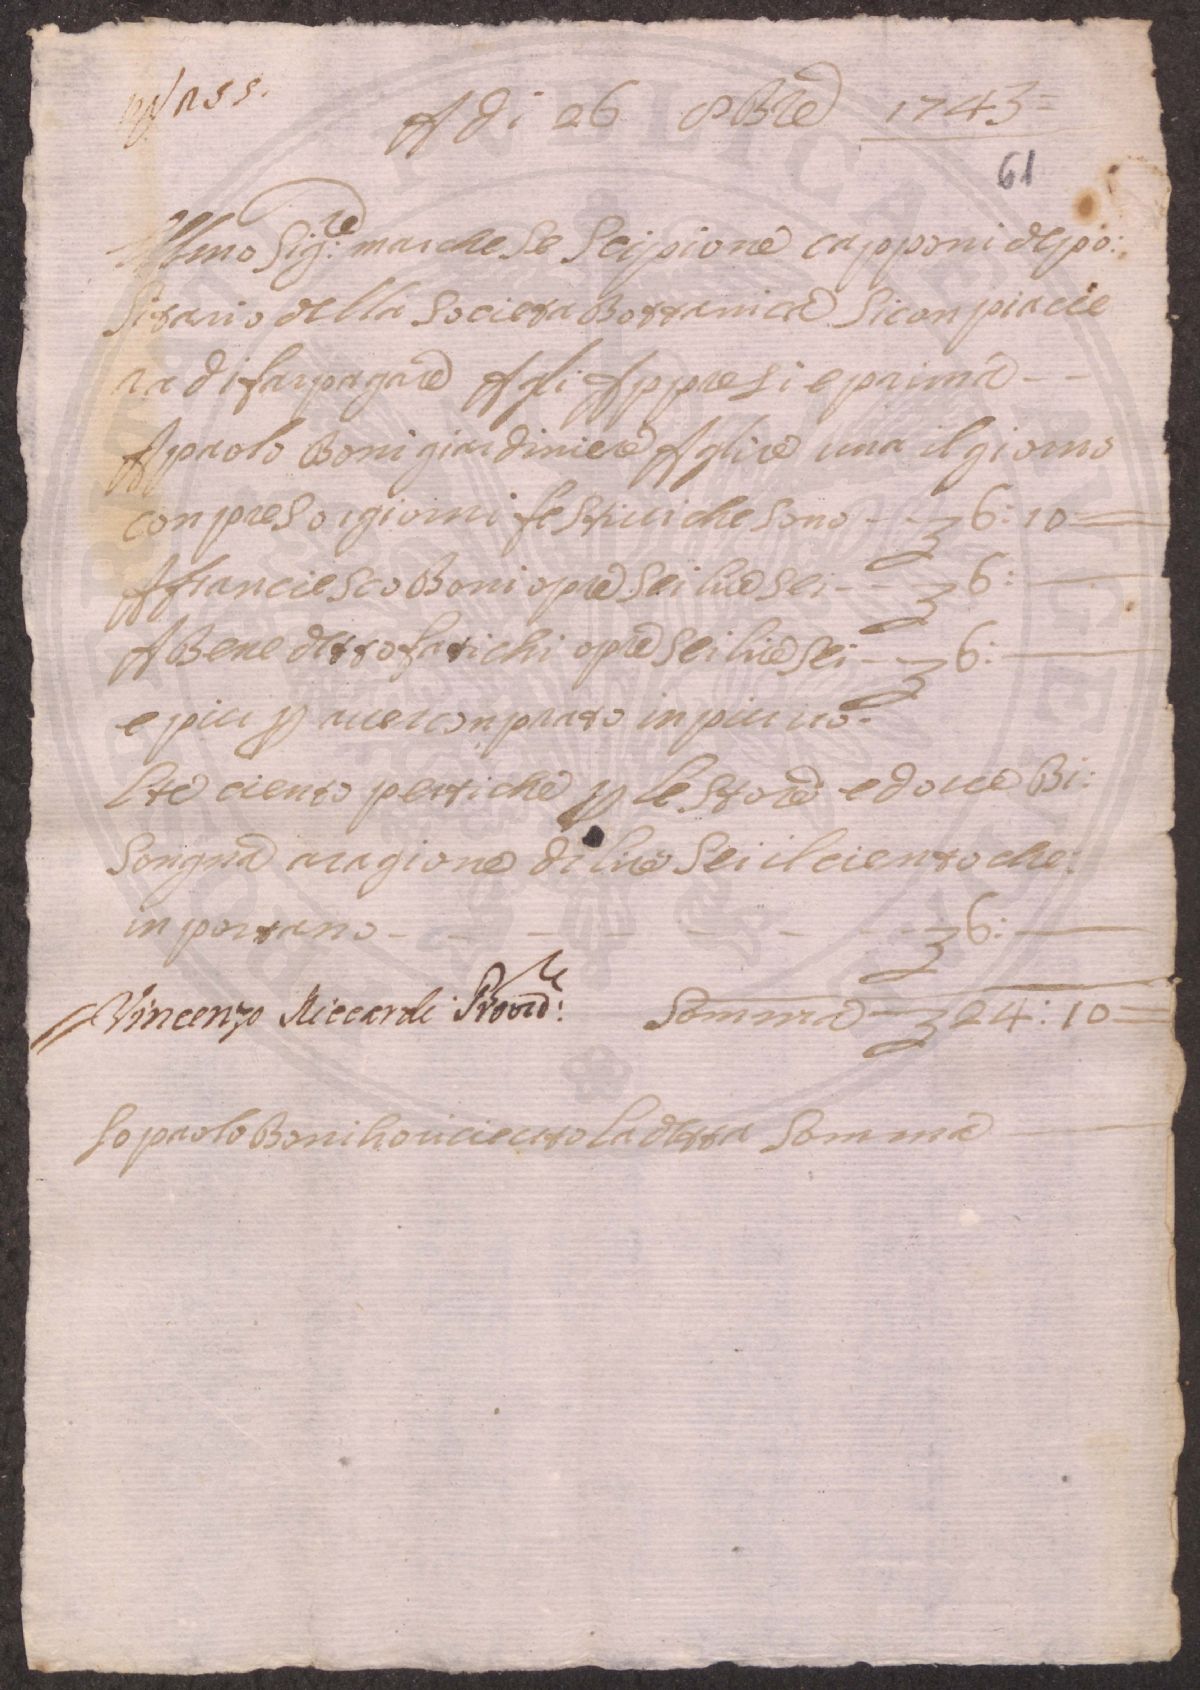 155.
A di 26 8Bre 1743=
61
Illmo Sig:re marchese Scipione capponi depo:
sitario della Societa Bottanica Siconpiacie
ra difarpagare Agli Appresi e prima --
Apaolo Boni giardiniere Aglire una il giorno
conpreso igiorni festiui che sono -- £ 6: 10
Afranciesco Boni opre sei lire sei -- £ 6:
ABenedetto fatichi opre sei lire sei -- £ 6:
e piu p auer conprato in piu uo=
lte ciento pertiche p le store e doue Bi:
Songna aragione di lire Sei il ciento che:
inportano - - - - - - - £ 6:
Vincenzo Riccardi Provd:re Somma - £ 24: 10
Io paolo Boni ho riceuto la detta Somma